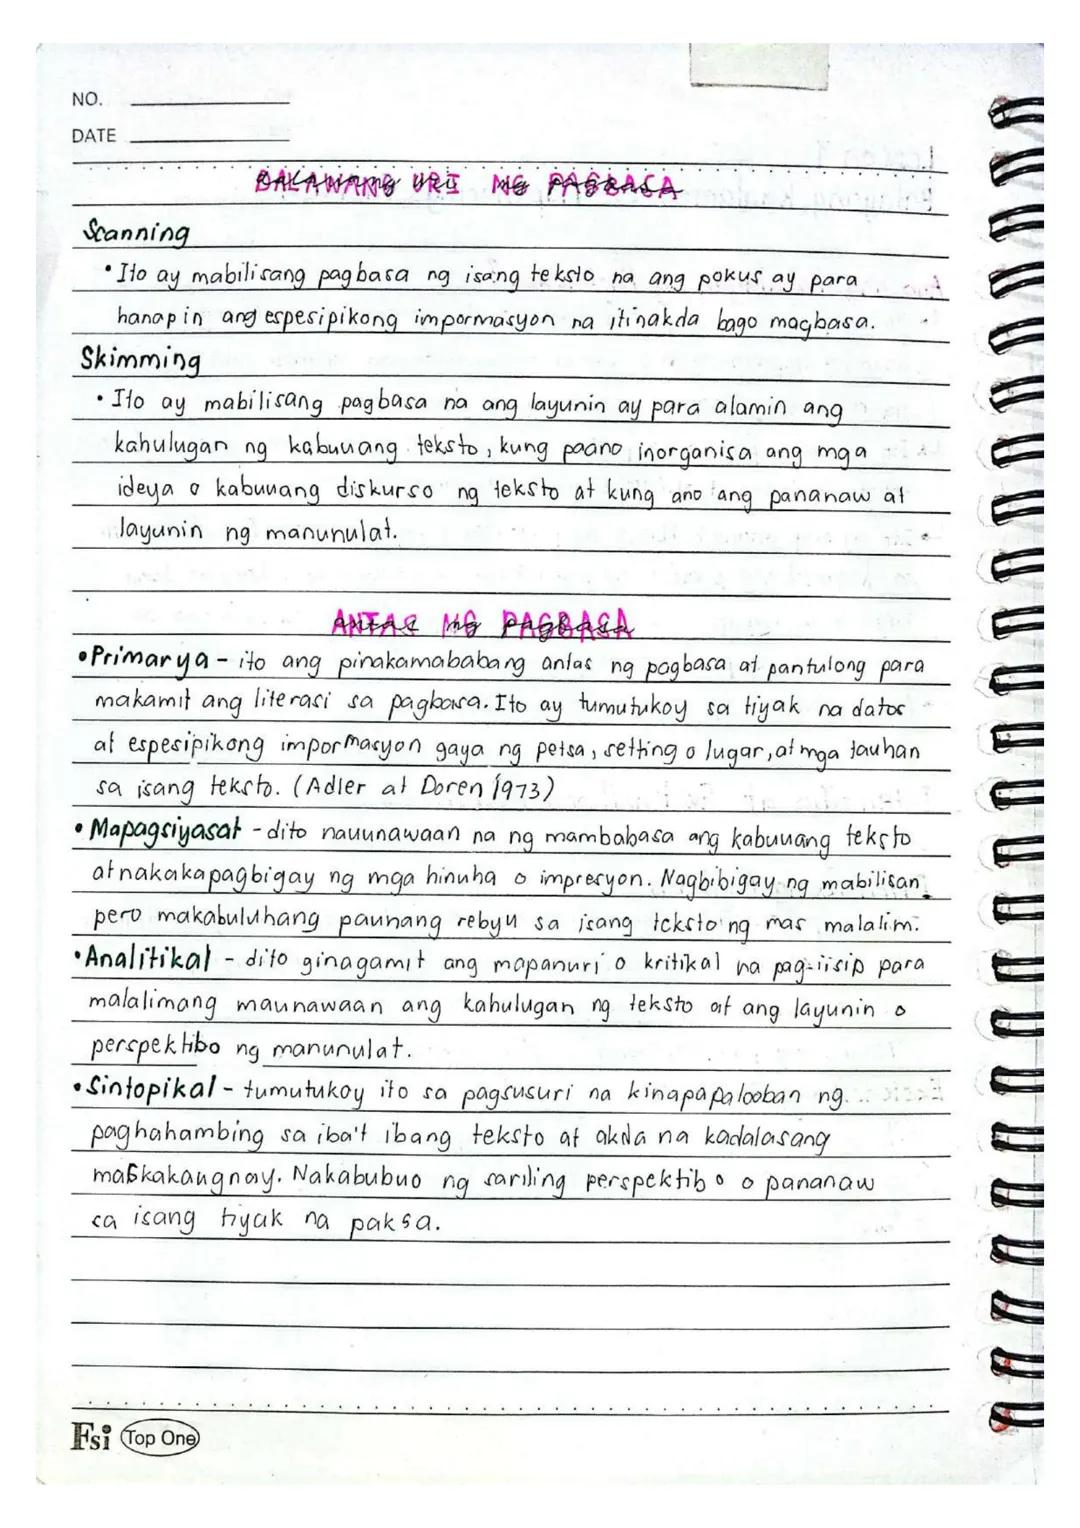 NO.
DATE
DALAWANG URI NG PAGBASA
Scanning
• Ito ay mabilisang pagbasa ng isang teksto na ang pokus ay para
hanapin ang espesipikong impormasyon na itinakda bago magbasa.
Skimming
• Ito ay mabilisang pagbasa na ang layunin ay para alamin ang
kahulugan ng kabuuang teksto, kung paano inorganisa ang mga
ideya o kabuuang diskurso ng teksto at kung ano ang pananaw at
layunin ng manunulat.
ANTAS NG PAGBASA
• Primarya - ito ang pinakamababang antas ng pagbasa at pantulong para
makamit ang literasi sa pagbasa. Ito ay tumutukoy sa tiyak na datos
at espesipikong impormasyon gaya ng petsa, setting o lugar, at mga tauhan
sa isang teksto. (Adler at Doren 1973)
• Mapagsiyasat - dito nauunawaan na ng mambabasa ang kabuuang teksto
at nakakapagbigay ng mga hinuha o impresyon. Nagbibigay ng mabilisan
pero makabuluhang paunang rebyu sa isang teksto ng mas malalim.
• Analitikal - dito ginagamit ang mapanuri o kritikal na pag-iisip para
malalimang maunawaan ang kahulugan ng teksto at ang layunin o
perspektibo ng manunulat.
• Sintopikal - tumutukoy ito sa pagsusuri na kinapapalooban ng
paghahambing sa iba't ibang teksto at akda na kadalasang
magkakaugnay. Nakabubuo ng sariling perspektibo o pananaw
sa isang tiyak na paksa.
Fsi Top One